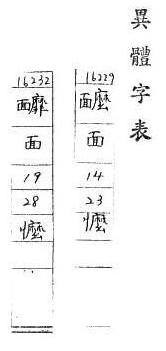 異體字表
16229
⿰面麼
面
14
23
懡
16232
⿰面靡
面
19
28
懡